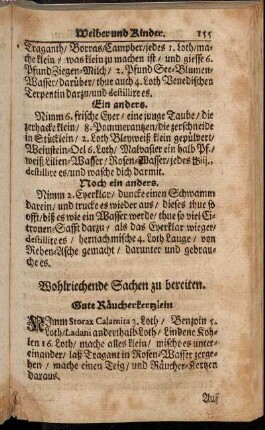 Weiber und Kinder. 155
Traganth / Borras / Campher / jedes 1. Loth / ma-
che klein / was klein zu machen ist / und giesse 6.
Pfund Ziegen-Milch / 2. Pfund See-Blumen-
Wasser / darüber / thue auch 4. Loth Venedischen
Terpentin darzu / und destillire es.
Ein anders.
Nimm 6. frische Eyer / eine junge Taube / die
zerhackt klein / 8. Pommerantzen / die zerschneide
in Stücklein / 2. Loth Bleyweiß klein gepülvert /
Weinstein-Oel 6. Loth / Malvasier ein halb Pf-
weiß Lilien-Wasser / Rosen-Wasser / jedes
destillire es / und wasche dich darmit.
Noch ein anders.
Nimm 2. Eyerklar / duncke einen Schwamm
darein / und trucke es wieder aus / dieses thue so
offt / biß es wie ein Wasser werde / thue so viel Ci-
tronen-Safft darzu / als das Eyerklar wieget /
destillire es / hernach mische 4. Loth Lauge / von
Reben-Asche gemacht / darunter und gebrau-
che es.
Wohlriechende Sachen zu bereiten.
Gute Räucherkertzlein
NImm Storax Calamita 3. Loth / Benzoin 5.
Loth / Ladani anderthalb Loth / Lindene Koh-
len 16. Loth / mache alles klein / misch es unter-
einander / laß Tragant in Rosen-Wasser zerge-
hen / mache einen Teig / und Räucher-Kertzen
daraus.
Auf